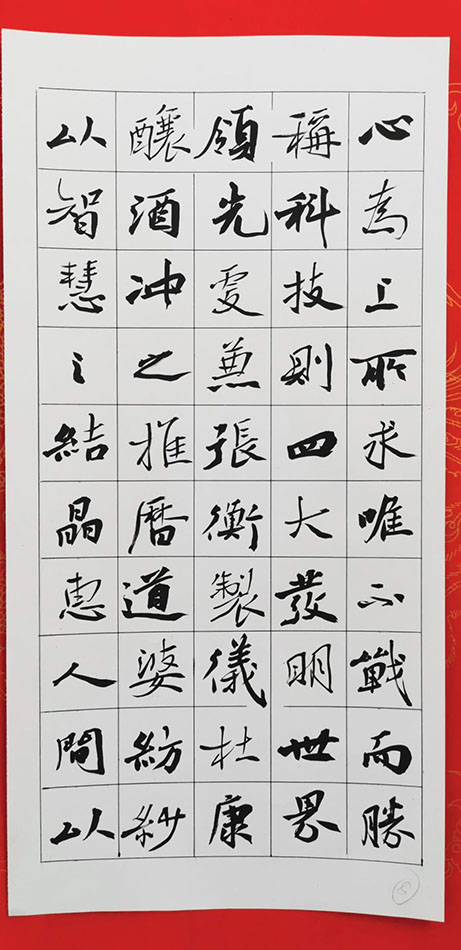 心為上所求唯不戰而勝
稱科技則四大發明世界
領先更兼張衡製儀杜康
釀酒冲之推曆道婆紡紗
以智慧之結晶惠人間以
5